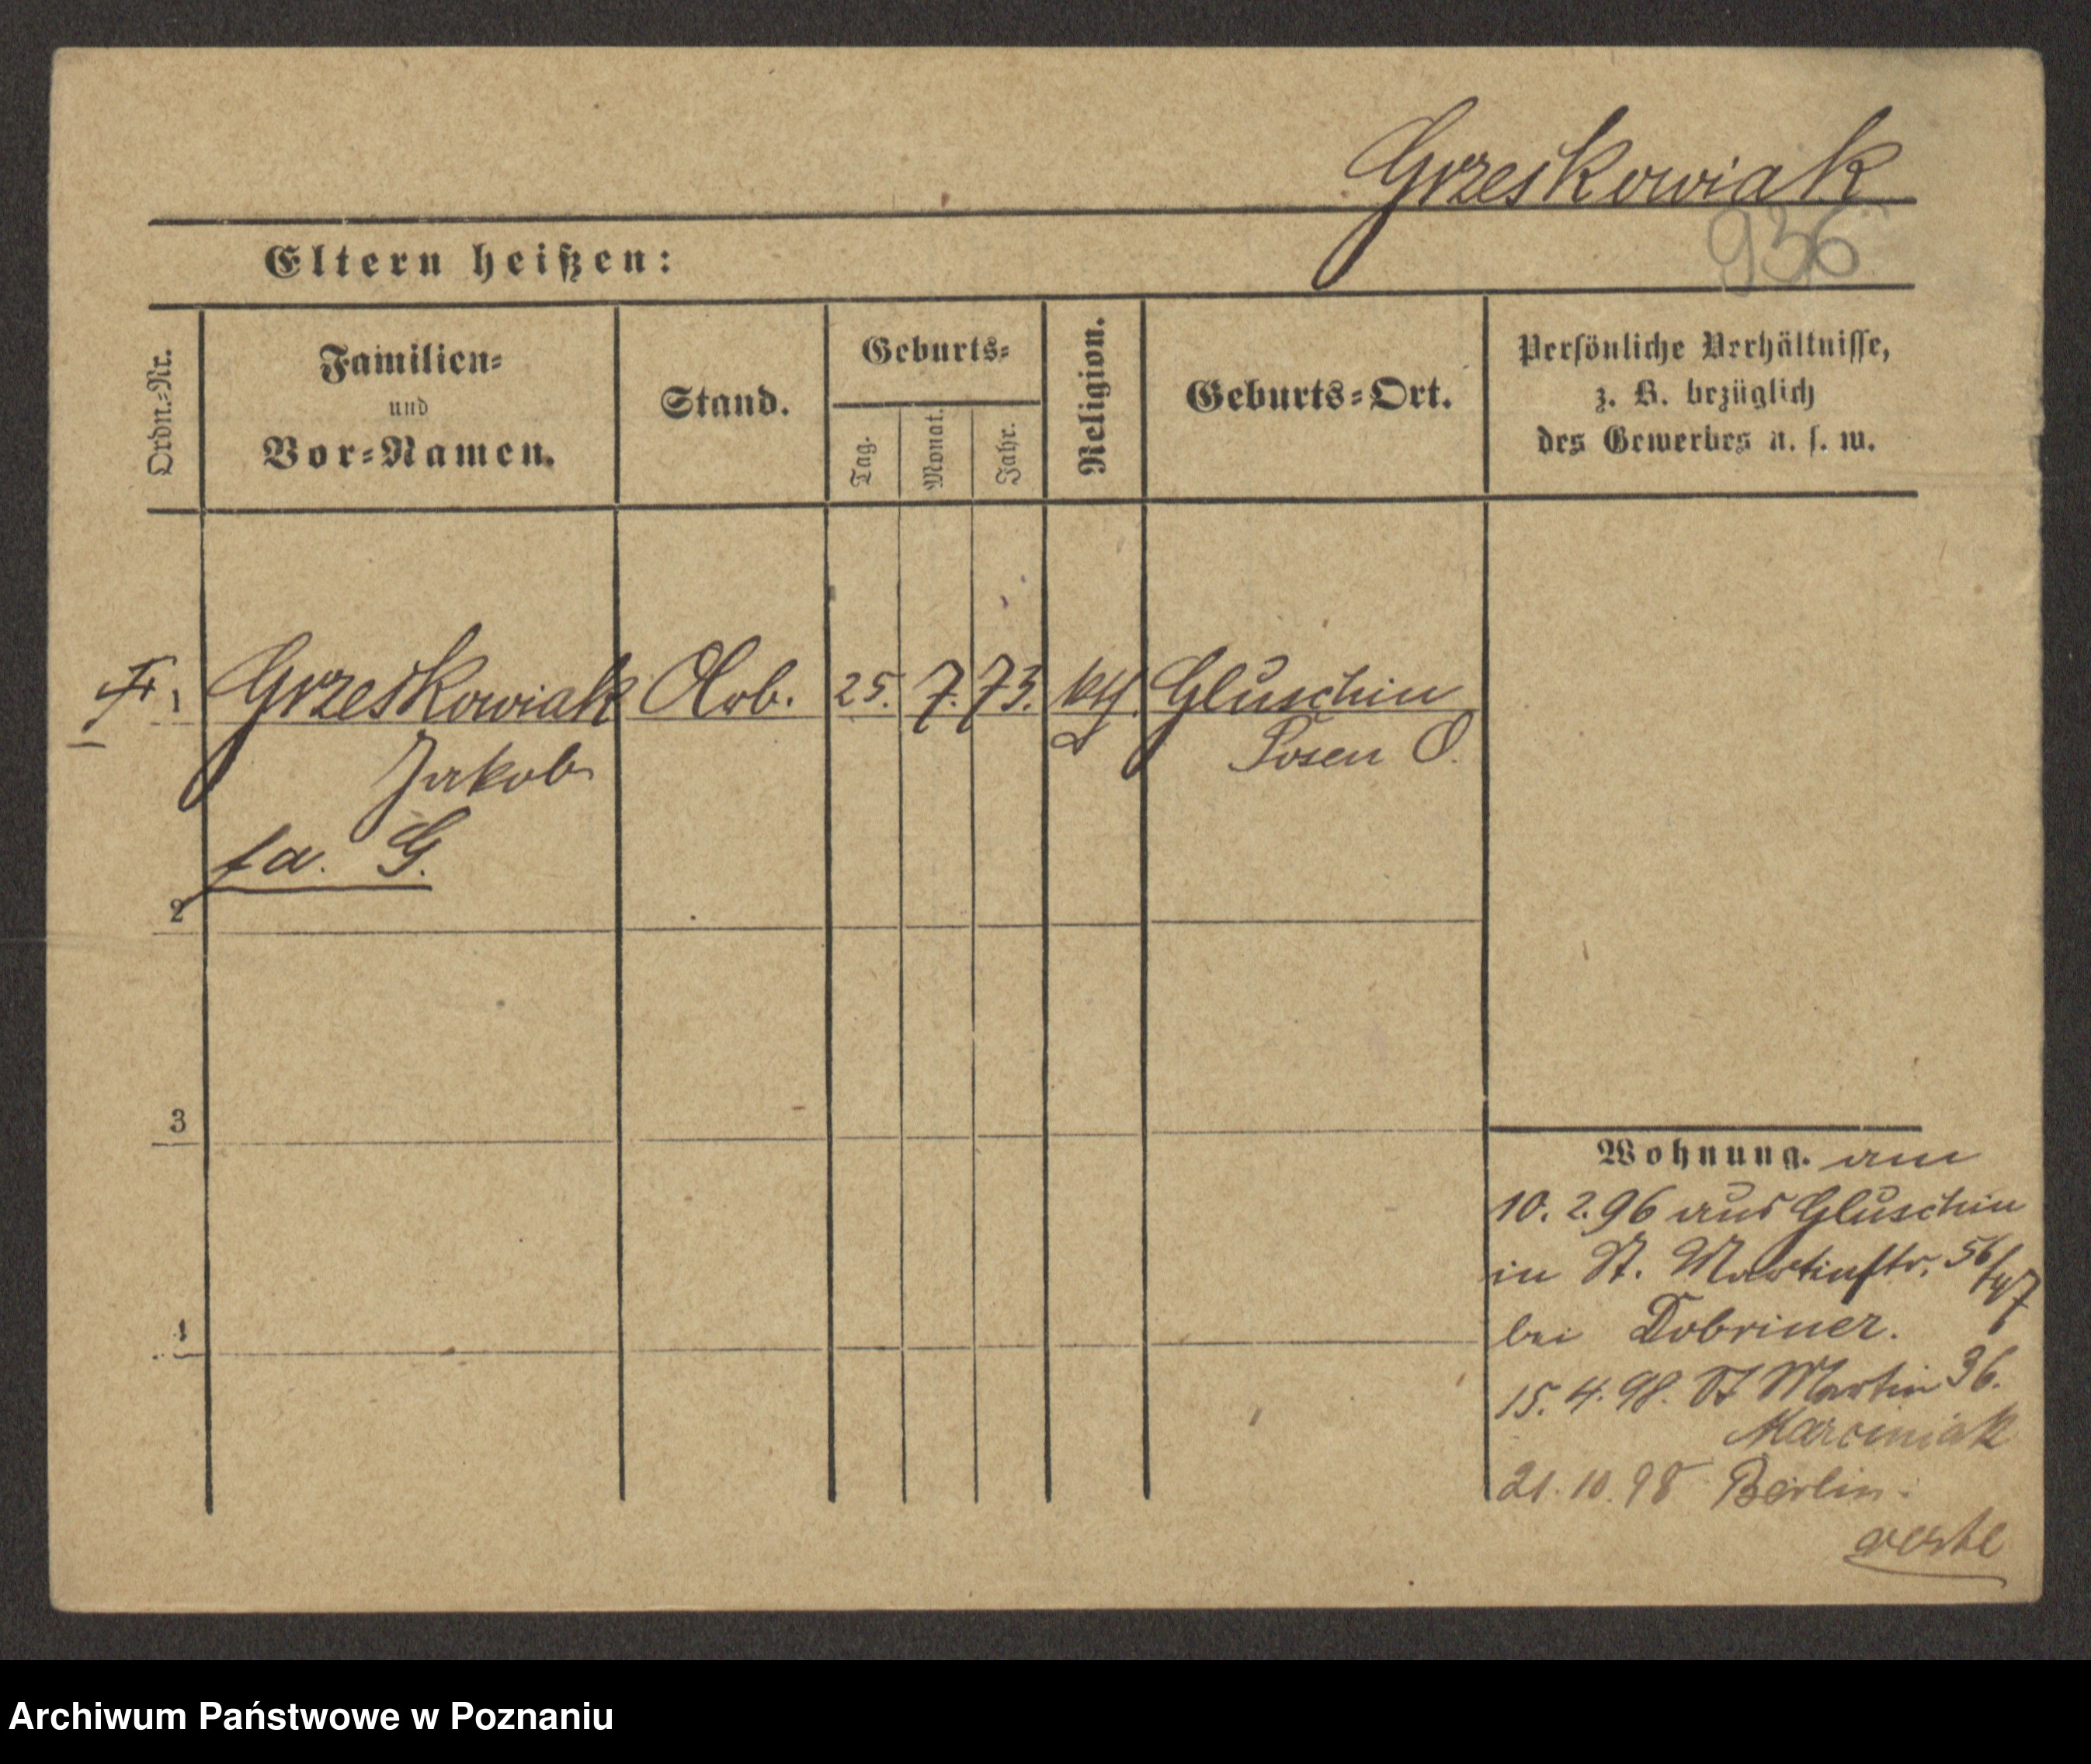 Grzeskowiak
936
Eltern heißen:
Ordn.-Nr.
Familien-
und
Vor-Namen.
Stand.
Geburts-
Tag.
Monat.
Jahr.
Religion.
Geburts-Ort.
Persönliche Verhältnisse,
z. B. bezüglich
des Gewerbes u. s. w.
Fr. 1 Grzeskowiak Arb. 25. 7. 73. kth. Gluschin
Jakob Posen O.
fa. G.
2
3
Wohnung. am
10. 2. 96 aus Gluschin
in St. Martinstr. 56/57
bei Dobriner.
15. 4. 98. St Martin 36.
Marciniak
21. 10. 98 Berlin.
Archiwum Państwowe w Poznaniu